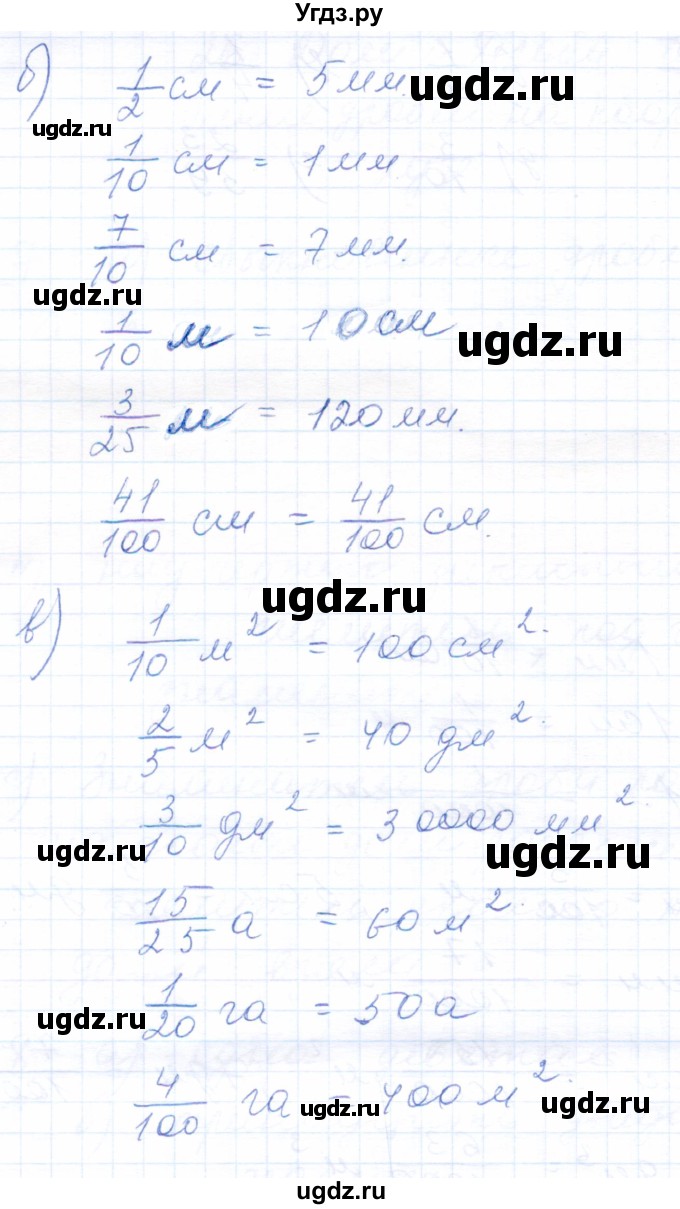 Угдз.ру
б) 1/2 см = 5 мм.
ugdz.ru
ugdz.ru
1/10 см = 1 мм
7/10 см = 7 мм.
ugdz.ru
1/10 м = 10 см
ugdz.ru
3/25 м = 120 мм.
41/100 см = 41/100 см.
ugdz.ru
в) 1/10 м² = 100 см².
2/5 м² = 40 дм².
3/10 дм² = 30000 мм².
ugdz.ru
ugdz.ru
15/25 а = 60 м².
1/20 га = 50 а
ugdz.ru
4/100 га = 400 м².
ugdz.ru
ugdz.ru
ugdz.ru